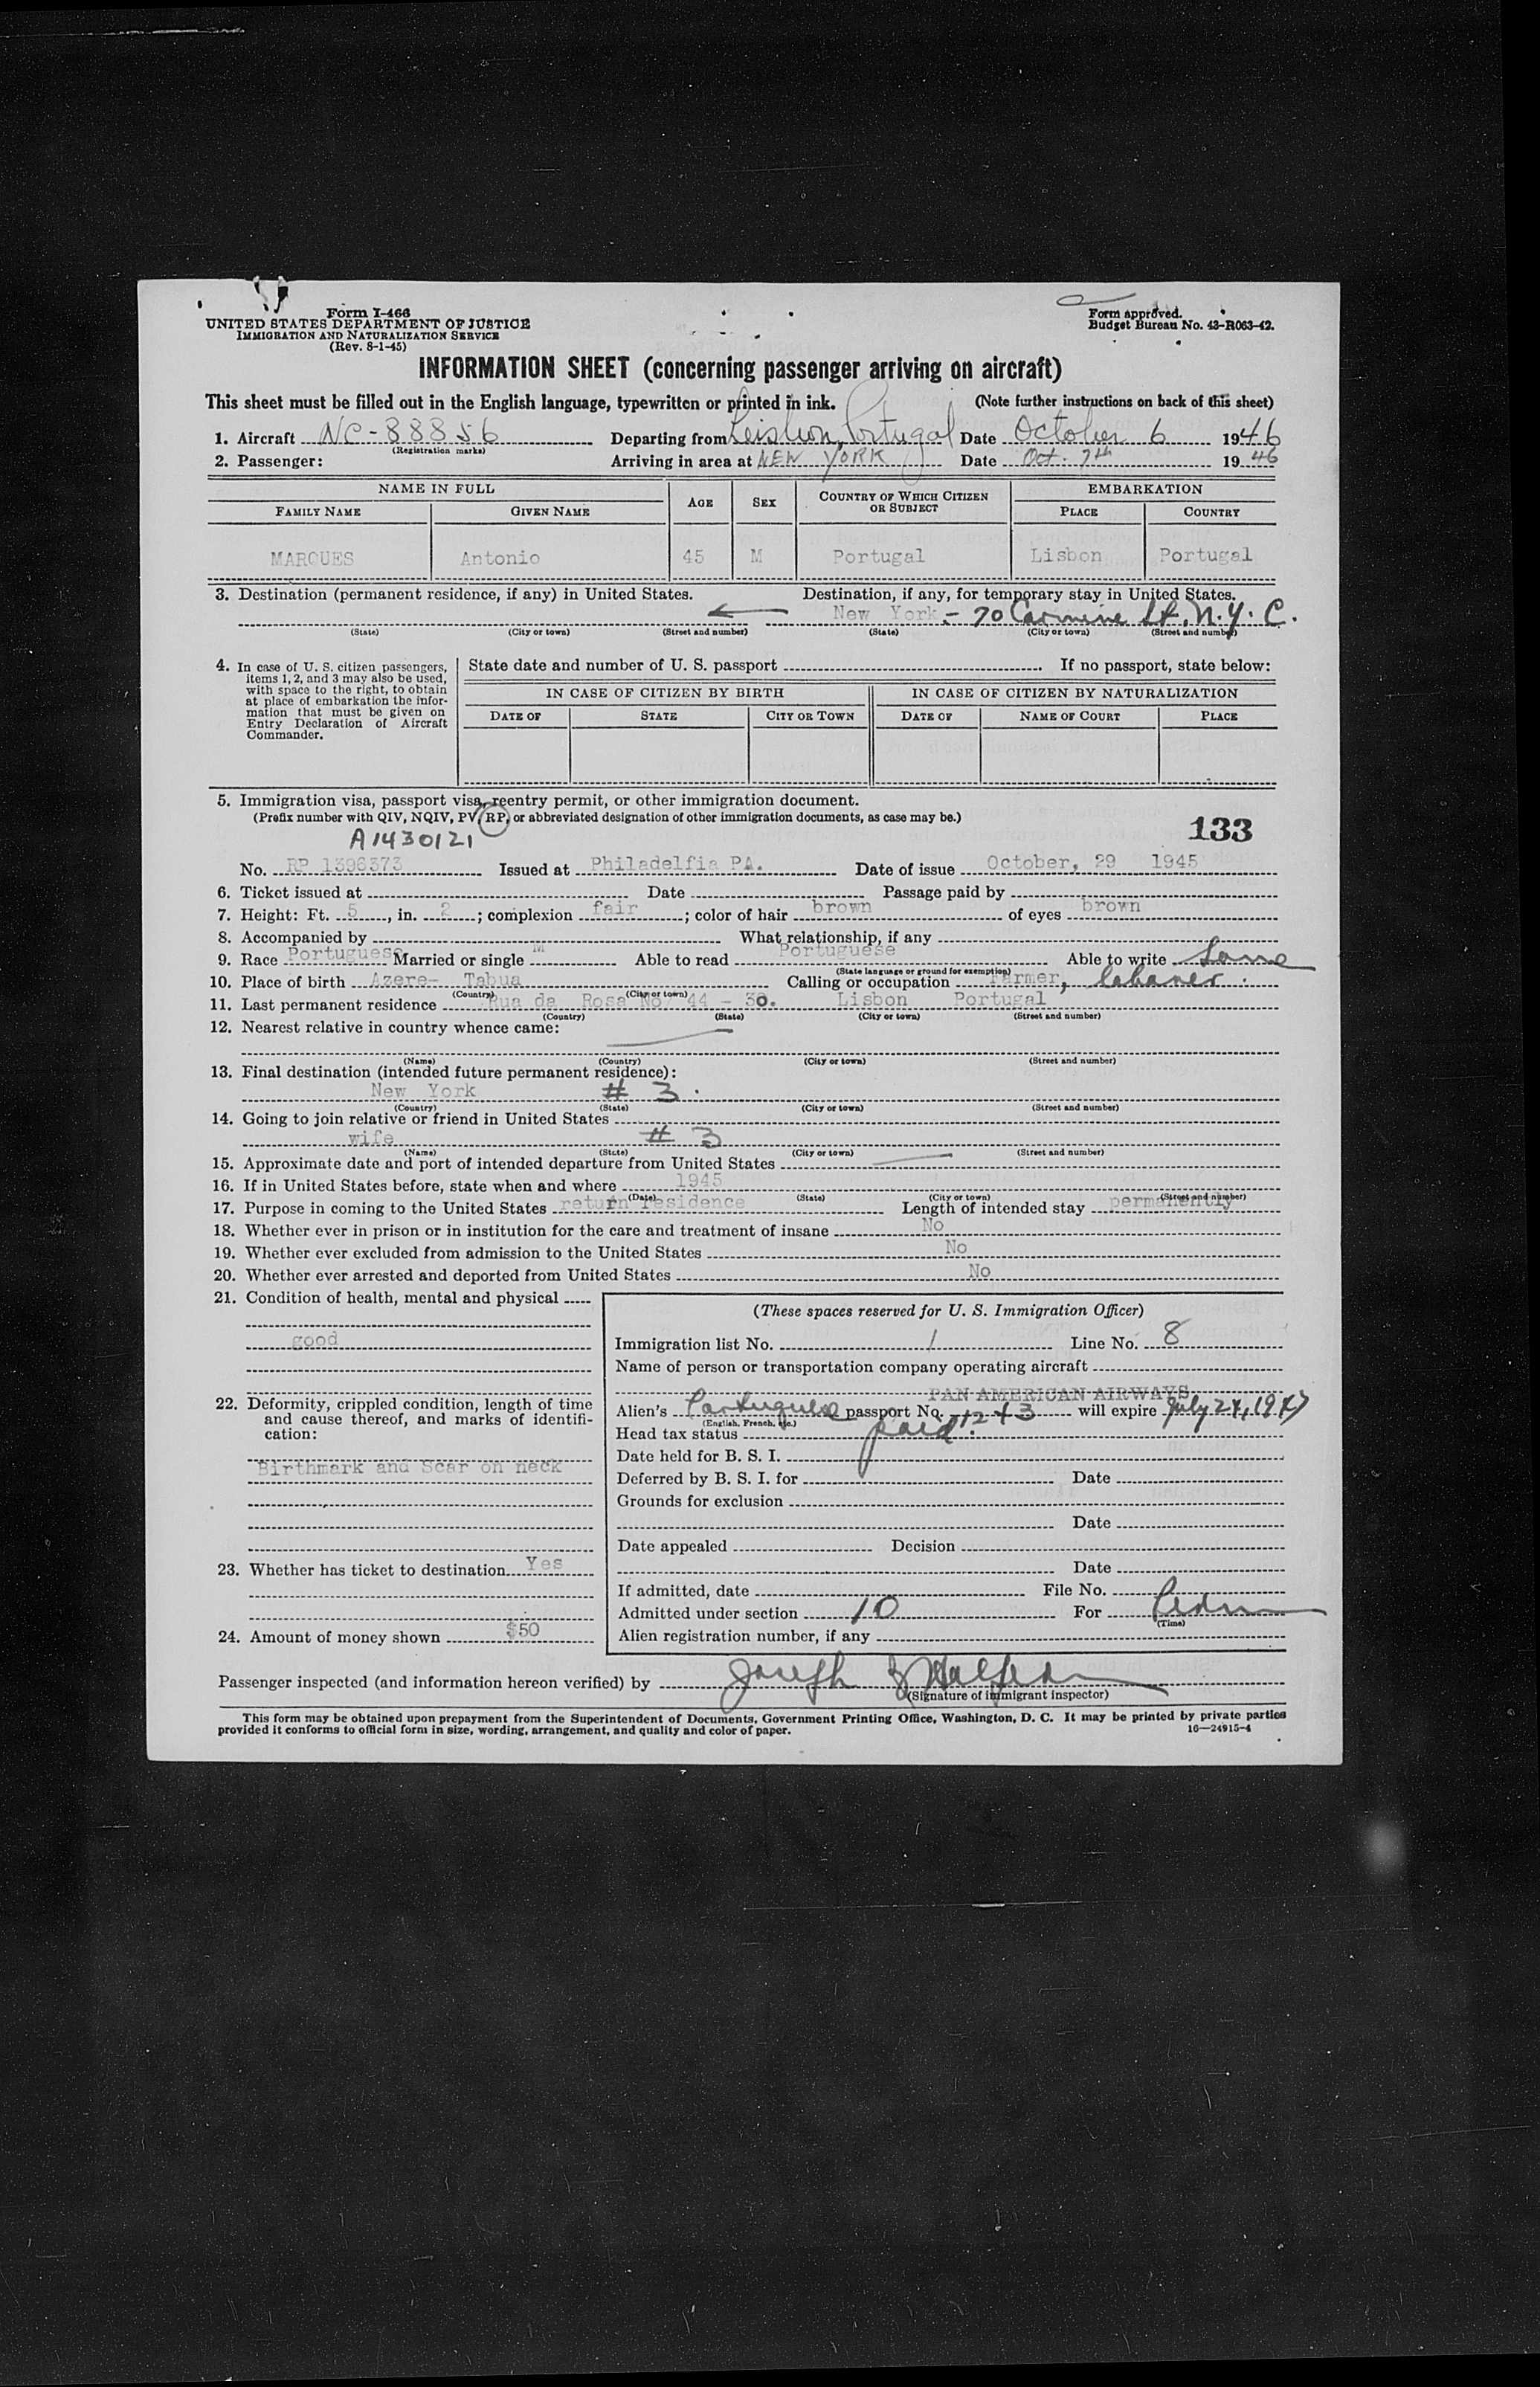 Form I-466
UNITED STATES DEPARTMENT OF JUSTICE
IMMIGRATION AND NATURALIZATION SERVICE
(Rev. 8-1-45)
Form approved.
Budget Bureau No. 43-R063-42.
INFORMATION SHEET (concerning passenger arriving on aircraft)
This sheet must be filled out in the English language, typewritten or printed in ink. (Note further instructions on back of this sheet)
1. Aircraft NC-88856 Departing from Portugal Date October 6 1946
(Registration marks)
2. Passenger: Arriving in area at NEW YORK Date Oct. 7th 1946
NAME IN FULL AGE SEX COUNTRY OF WHICH CITIZEN OR SUBJECT EMBARKATION
FAMILY NAME GIVEN NAME PLACE COUNTRY
MARQUES Antonio 45 M Portugal Lisbon Portugal
3. Destination (permanent residence, if any) in United States. Destination, if any, for temporary stay in United States.
New York - 70 Carmine St. N.Y.C.
(State) (City or town) (Street and number) (State) (City or town) (Street and number)
4. In case of U. S. citizen passengers, items 1, 2, and 3 may also be used, with space to the right, to obtain at place of embarkation the information that must be given on Entry Declaration of Aircraft Commander.
State date and number of U. S. passport If no passport, state below:
IN CASE OF CITIZEN BY BIRTH IN CASE OF CITIZEN BY NATURALIZATION
DATE OF STATE CITY OR TOWN DATE OF NAME OF COURT PLACE
5. Immigration visa, passport visa, reentry permit, or other immigration document.
(Prefix number with QIV, NQIV, PV, RP, or abbreviated designation of other immigration documents, as case may be.)
A1430121 133
No. RP 1396373 Issued at Philadelfia PA. Date of issue October, 29 1945
6. Ticket issued at Date Passage paid by
7. Height: Ft. 5, in. 2; complexion fair; color of hair brown of eyes brown
8. Accompanied by What relationship, if any
9. Race Portuguese Married or single M Able to read Portuguese Able to write Same
(State language or ground for exemption)
10. Place of birth Azere- Tabua Calling or occupation Farmer, laborer.
(Country) (City or town)
11. Last permanent residence Rua da Rosa No/ 44 - 3o. Lisbon Portugal
(Country) (State) (City or town) (Street and number)
12. Nearest relative in country whence came:
(Name) (Country) (City or town) (Street and number)
13. Final destination (intended future permanent residence):
New York # 3.
(Country) (State) (City or town) (Street and number)
14. Going to join relative or friend in United States
wife # 3
(Name) (State) (City or town) (Street and number)
15. Approximate date and port of intended departure from United States
16. If in United States before, state when and where 1945
(Date) (State) (City or town) (Street and number)
17. Purpose in coming to the United States return residence Length of intended stay permanently
18. Whether ever in prison or in institution for the care and treatment of insane No
19. Whether ever excluded from admission to the United States No
20. Whether ever arrested and deported from United States No
21. Condition of health, mental and physical
good
22. Deformity, crippled condition, length of time and cause thereof, and marks of identification:
Birthmark and Scar on neck
23. Whether has ticket to destination Yes
24. Amount of money shown $50
(These spaces reserved for U. S. Immigration Officer)
Immigration list No. 1 Line No. 8
Name of person or transportation company operating aircraft
PAN AMERICAN AIRWAYS
Alien's Portuguese passport No. 1243 will expire July 27, 1947
(English, French, etc.)
Head tax status paid.
Date held for B. S. I.
Deferred by B. S. I. for Date
Grounds for exclusion
Date
Date appealed Decision
Date
If admitted, date File No.
Admitted under section 10 For Perm
(Time)
Alien registration number, if any
Passenger inspected (and information hereon verified) by Joseph
(Signature of immigrant inspector)
This form may be obtained upon prepayment from the Superintendent of Documents, Government Printing Office, Washington, D. C. It may be printed by private parties
provided it conforms to official form in size, wording, arrangement, and quality and color of paper. 16—24915-4